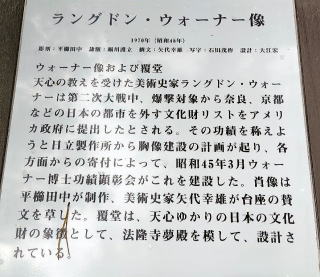 ラングドン・ウォーナー像
1970年（昭和45年）
影刻：平櫛田中 建築：堀川護立 撰文：矢代幸雄 写字：石田茂作 設計：大江宏
ウォーナー像および覆堂
天心の教えを受けた美術史家ラングドン・ウォー
ナーは第二次大戦中、爆撃対象から奈良、京都
などの日本の都市を外す文化財リストをアメリ
カ政府に提出したとされる。その功績を称えよ
うと日立製作所から胸像建設の計画が起り、各
方面からの寄付によって、昭和45年3月ウォーナ
ー博士功績顕彰会がこれを建設した。肖像は
平櫛田中が制作、美術史家矢代幸雄が台座の賛
文を草した。覆堂は、天心ゆかりの日本の文化
財の象徴として、法隆寺夢殿を模して、設計さ
れている。